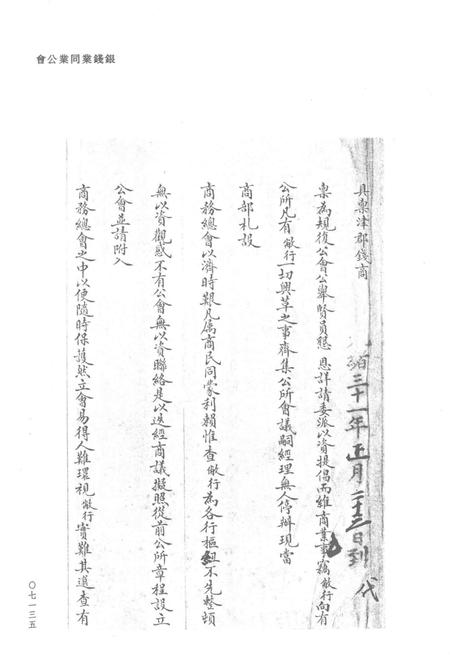 銀錢業同業公會
光緒三十一年正月二十三日到 代
具稟津郡錢商
稟為規復公會公舉賢員懇恩詳請委派以資提倡而維商業事竊敝行向有
公所凡有敝行一切興革之事齊集公所會議嗣經理無人停辦現當
商部札設
商務總會以濟時艱凡属商民同蒙利賴惟查敝行為各行樞紐不先整頓
無以資觀感不有公會無以資聯絡是以迭經商議擬照從前公所章程設立
公會並請附入
商務總會之中以便隨時保護然立會易得人難環視敝行實難其選查有
〇七一三五